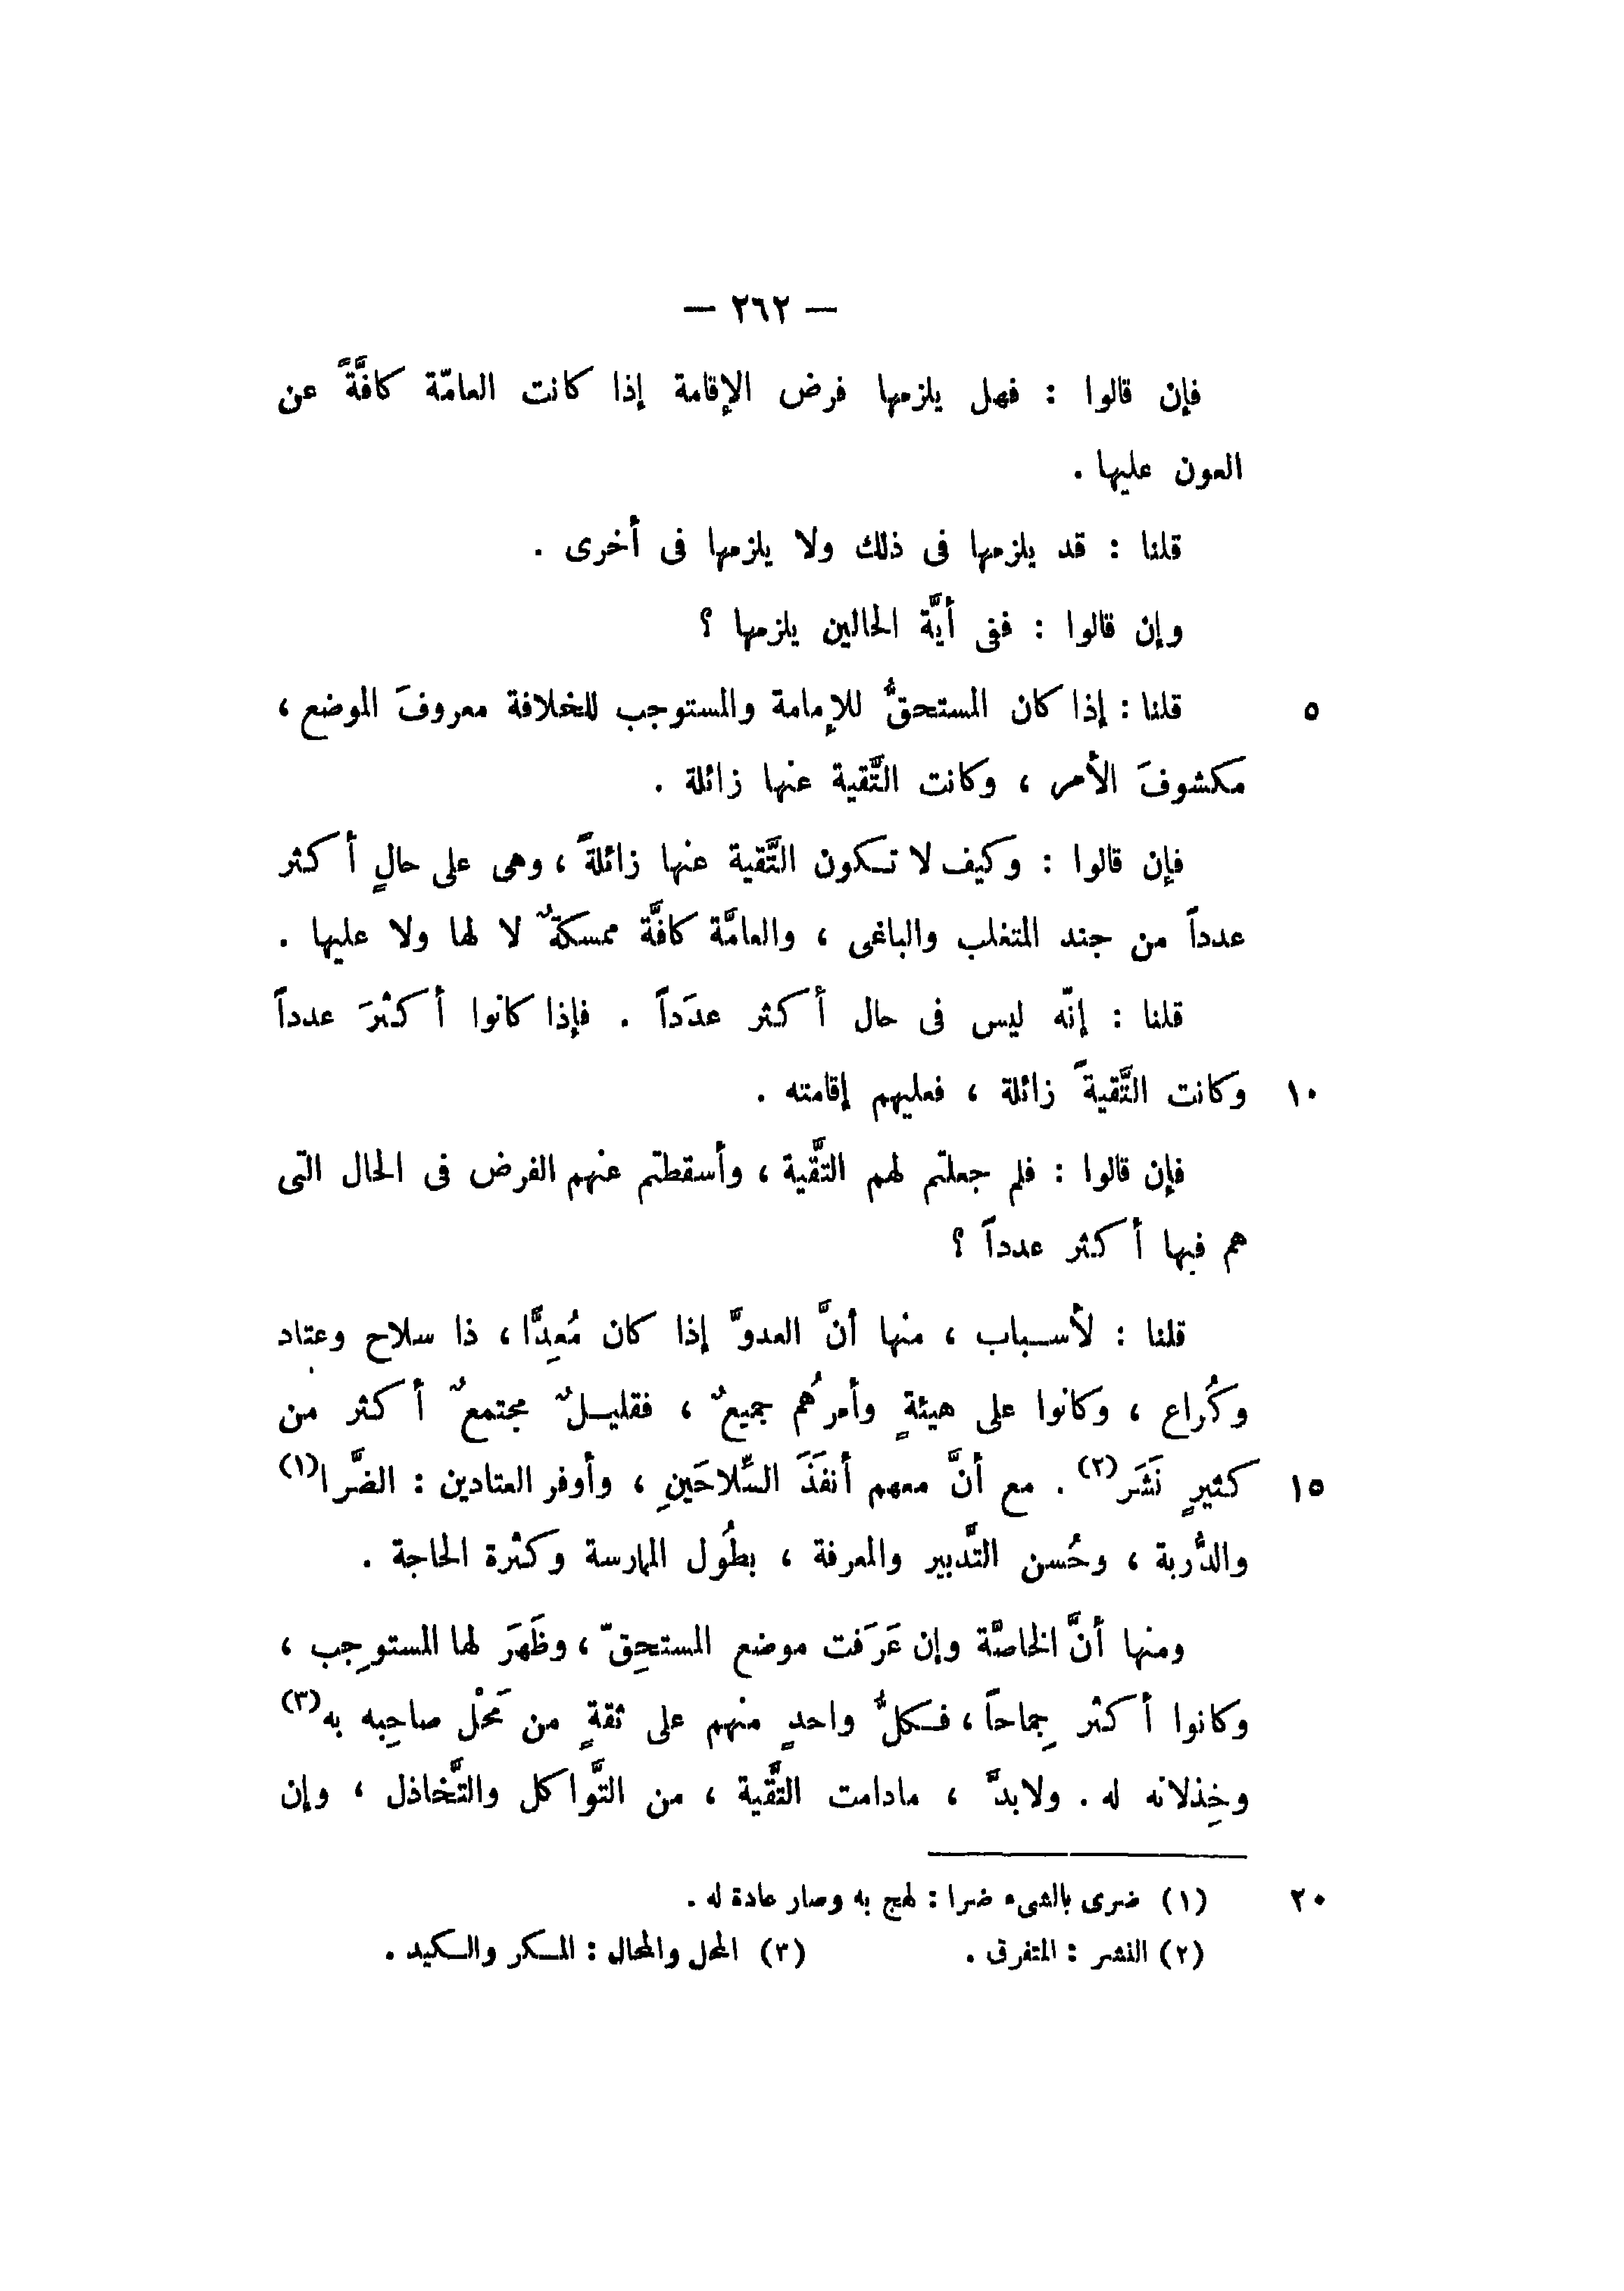 — ٢٦٢ —
فإن قالوا : فهل يلزمها فرض الإقامة إذا كانت العامّة كافَّةً عن
العون عليها .
قلنا : قد يلزمها فى ذلك ولا يلزمها فى أخرى .
وإن قالوا : ففى أيَّة الحالين يلزمها ؟
قلنا : إذا كان المستحقُّ للإمامة والمستوجب للخلافة معروفَ الموضع ، ٥
مكشوفَ الأمر ، وكانت التَّقية عنها زائلة .
فإن قالوا : وكيف لا تكون التَّقية عنها زائلةً ، وهى على حالٍ أكثر
عدداً من جند المتغلب والباغى ، والعامَّة كافَّة ممسكةٌ لا لها ولا عليها .
قلنا : إنّه ليس فى حال أكثر عدَداً . فإذا كانوا أكثرَ عدداً
وكانت التَّقيةَ زائلة ، فعليهم إقامته . ١٠
فإن قالوا : فلم جعلتم لهم التَّقية ، وأسقطتم عنهم الفرض فى الحال التى
هم فيها أكثر عدداً ؟
قلنا : لأسباب ، منها أنَّ العدوَّ إذا كان مُعِدًّا ، ذا سلاح وعتاد
وكُراع ، وكانوا على هيئةٍ وأمرُهم جميعٌ ، فقليلٌ مجتمعٌ أكثر من
كثيرٍ نَشَر (٢) . مع أنَّ معهم أنفَذَ السِّلاحَينِ ، وأوفر العتادين : الضَّرا (١) ١٥
والدُّربة ، وحُسن التَّدبير والمعرفة ، بطُول الممارسة وكثرة الحاجة .
ومنها أنَّ الخاصَّة وإن عَرَفت موضع المستحِقّ ، وظَهرَ لها المستوجِب ،
وكانوا أكثر جِماحاً ، فكلُّ واحدٍ منهم على ثقةٍ من مَحْل صاحِبه به (٣)
وخِذلانه له . ولابدَّ ، مادامت التَّقية ، من التَّواكل والتَّخاذل ، وإن
(١) ضرى بالشىء ضرا : لهج به وصار عادة له . ٢٠
(٢) النشر : المتفرق . (٣) المحل والمحال : المكر والكيد .